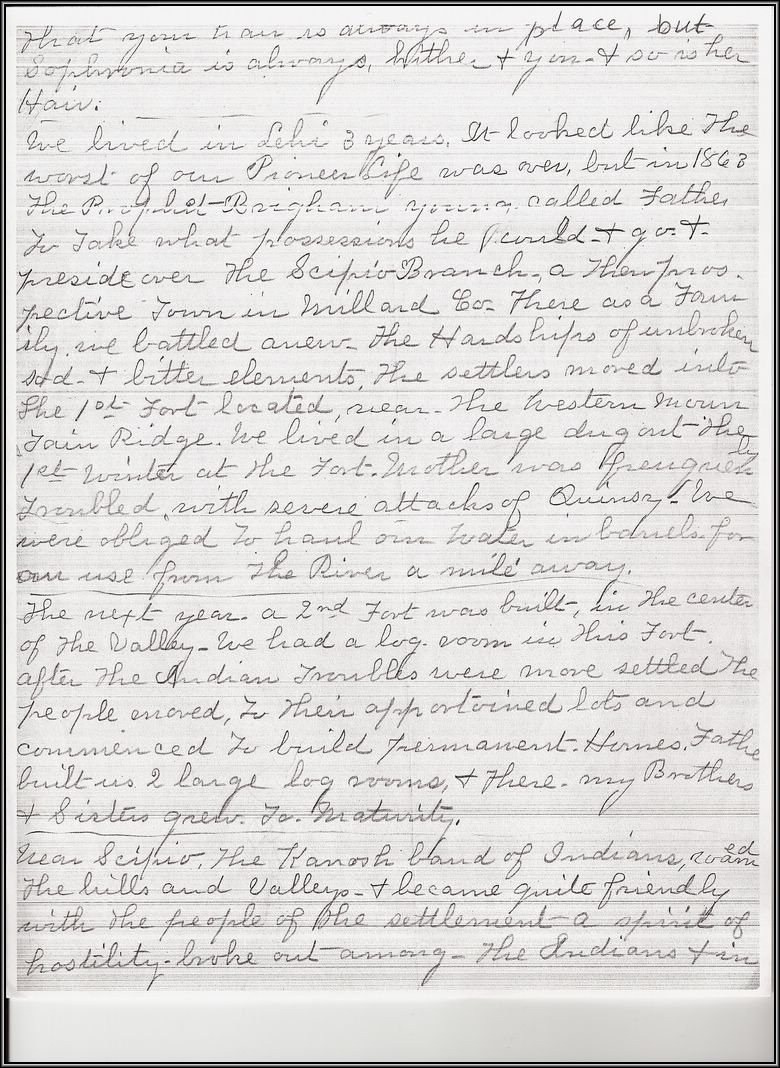 that your hair is always in place, but
Sophronia is always, hither & yon - & so is her
Hair.
We lived in Lehi 3 years. It looked like The
worst of our Pioneer Life was over, but in 1863
The Prophet - Brigham young. called Father
To Take what possessions he could - & go - &
preside over The Scipio Branch - a Then pros -
pective Town in Millard Co - There as a Fam
ily. we battled anew - The Hardships of unbroken
sod - & bitter elements, The settlers moved into
The 1st Fort located, near - The Western Moun
Tain Ridge. We lived in a large dugout The
1st Winter at The Fort. Mother was frequently
Troubled, with severe attacks of Quinsy - We
were obliged To haul our Water in barrels - for
our use from The River a mile away.
The next year - a 2nd Fort was built, in The center
of The Valley - We had a log room in This Fort.
after The Indian Troubles were more settled The
people moved, To Their apportoined lots and
commenced To build permanent - Homes. Father
built us 2 large log rooms, & There - my Brothers
& Sisters grew - To - Maturity.
Near Scipio, The Kanosh band of Indians, roamed
The hills and Valleys - & became quite friendly
with The people of The settlement - a spirit of
hostility - broke out among - The Indians & in